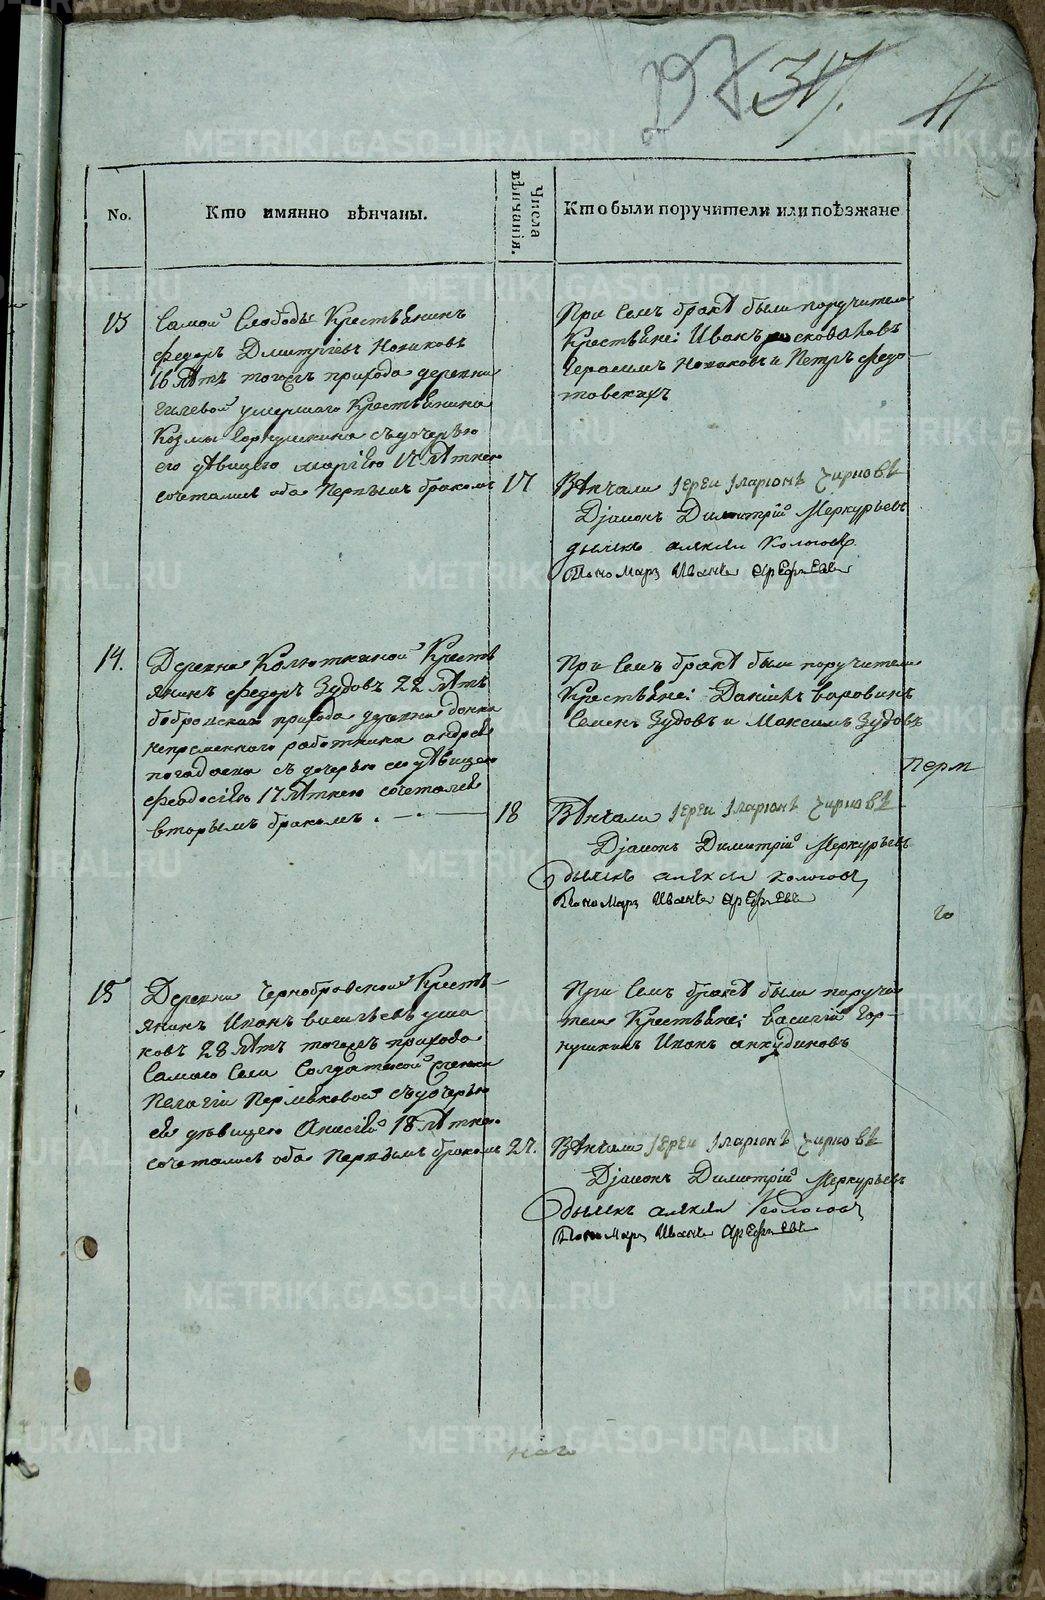 317.
11
No.
Кто имянно вѣнчаны.
Числа вѣнчанія.
Кто были поручители или поѣзжане
13
Самой Слободы Крестьянинъ
Федоръ Дмитріевъ Новиковъ
16 лѣтъ тогожъ прихода деревни
Гилевой умершаго Крестьянина
Козмы Горнушкина съ дочерью
его дѣвицею Марiею 17 лѣтнею
сочетались оба первымъ бракомъ
17
При семъ бракѣ были поручители
Крестьяне: Иванъ
Герасимъ Новиковъ и Петръ Федо
товскихъ
Вѣнчали Іереи Іларіонъ Чирковъ
Діаконъ Димитрій Меркурьевъ
дьячекъ Алексѣй Кологовъ
Пономарь Иванъ Арефьевъ
14.
Деревни Колюткиной Кресть
янинъ Федоръ Зудовъ 22 лѣтъ
бобровскаго прихода деревни
непременнаго работника андрея
съ дочерью ево дѣвицею
Феодосією 17 лѣтнею сочетался
вторымъ бракомъ.
18
При семъ бракѣ были поручители
Крестьяне: Данiилъ Боровинъ
Семенъ Зудовъ и Максимъ Зудовъ
перм
Вѣнчали Іереи Іларіонъ Чирковъ
Діаконъ Димитрій Меркурьевъ
дьячекъ Алексѣй Кологовъ
Пономарь Иванъ Арефьевъ
го
15
Деревни Чернобровской Кресть
янинъ Иванъ Васильевъ Уша
ковъ 28 лѣтъ тогожъ прихода
самаго села Солдатской женки
Пелагіи Пермяковой съ дочерью
ея дѣвицею Анисіей 18 лѣтнею
сочетались оба первымъ бракомъ
27.
При семъ бракѣ были поручи
тели Крестьяне: Василій Гор-
нушкинъ Иванъ Анкудиновъ
Вѣнчали Іереи Іларіонъ Чирковъ
Діаконъ Димитрій Меркурьевъ
дьячекъ Алексѣй Кологовъ
Пономарь Иванъ Арефьевъ
наго
METRIKI.GASO-URAL.RU